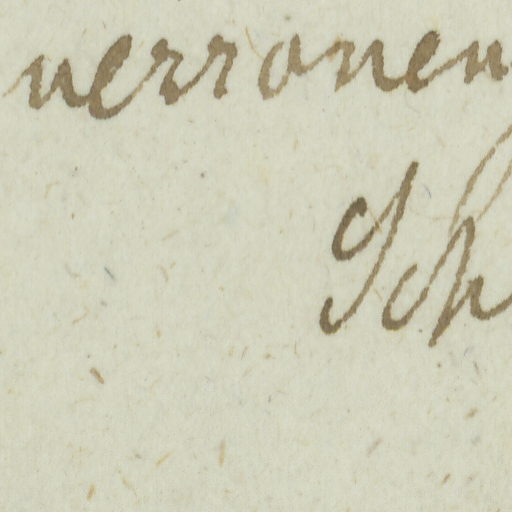 verronen
Sch